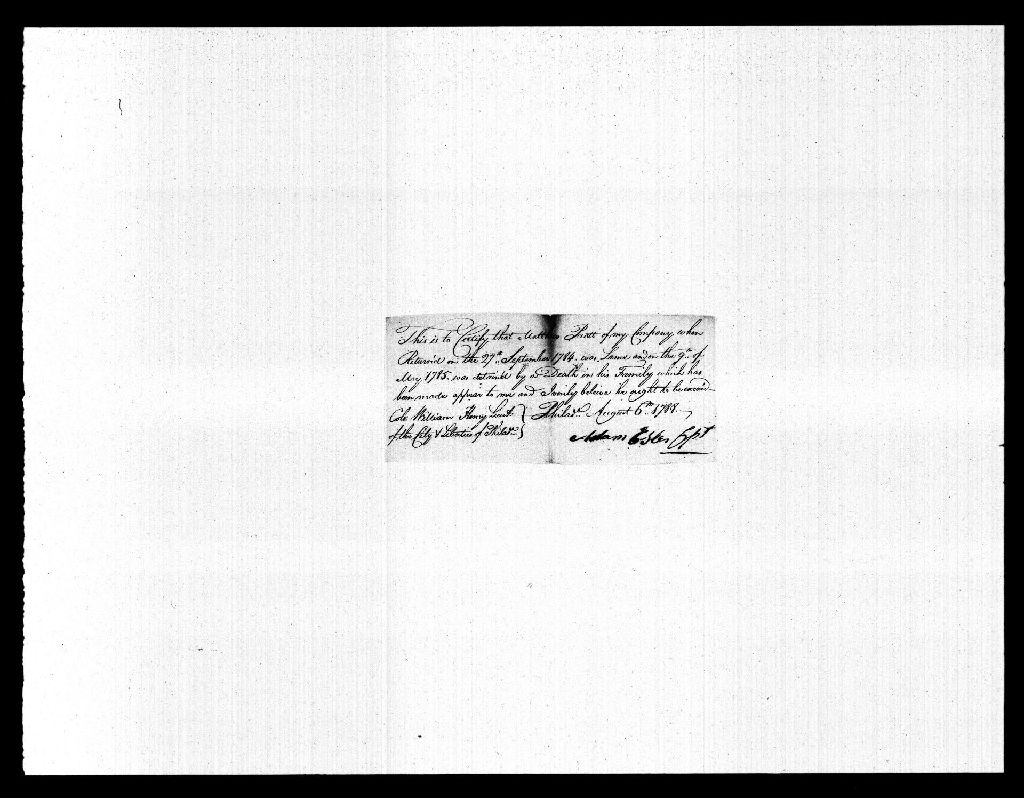 This is to Certify that Matthew Pratt of my Company, when
Return'd on the 27th September 1784, was Lame and on the 9th of
May 1785, was detain'd by a Death in his Family which has
been made appear to me and I verily believe he ought to be
Colo. William Henry Lieut.
of the City & Liberties of Philada.
Philada. August 6th 1788
Adam Capt